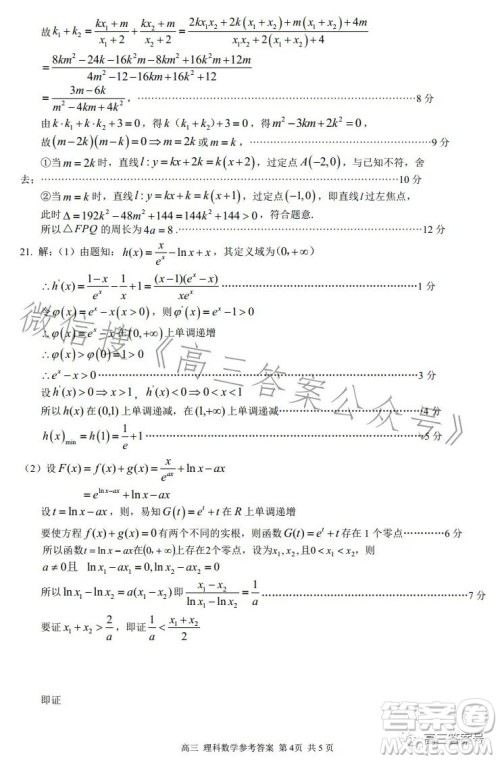 故 k₁+k₂ = (kx₁+m)/(x₁+2) + (kx₂+m)/(x₂+2) = (2kx₁x₂+2k(x₁+x₂)+m(x₁+x₂)+4m)/(x₁x₂+2(x₁+x₂)+4)
= (8km²−24k−16k²m−8km²+16k²m+12m)/(4m²−12−16km+16k²+12)
= (3m−6k)/(m²−4km+4k²), ⋯⋯ 8 分
由 k·k₁+k·k₂+3=0,得 k(k₁+k₂)+3=0,得 m²−3km+2k²=0,
故 (m−2k)(m−k)=0 ⇒ m=2k 或 m=k, ⋯⋯ 9 分
①当 m=2k 时,直线 l:y=kx+2k=k(x+2),过定点 A(−2,0),与已知不符,舍
去; ⋯⋯ 10 分
②当 m=k 时,直线 l:y=kx+k=k(x+1),过定点 (−1,0),即直线 l 过左焦点,
此时 Δ=192k²−48m²+144=144k²+144>0,符合题意.
所以 △FPQ 的周长为 4a=8. ⋯⋯ 12 分
21. 解:(1)由题知: h(x)=x/eˣ−ln x+x,其定义域为(0,+∞)
∴h'(x)=(1−x)/eˣ−1/x+1=(x−1)(eˣ−x)/(xeˣ) ⋯⋯ 1 分
令φ(x)=eˣ−x(x>0),则φ'(x)=eˣ−1>0
∴φ(x)=eˣ−x 在(0,+∞)上单调递增
∴φ(x)>φ(0)=1>0
∴eˣ−x>0 ⋯⋯ 3 分
设 h'(x)>0⇒x>1, h'(x)<0⇒0<x<1
所以 h(x) 在(0,1)上单调递减,在(1,+∞)上单调递增 ⋯⋯ 4 分
h(x)min=h(1)=1/e+1 ⋯⋯ 5 分
(2)设 F(x)=f(x)+g(x)=x/e^(ax)+ln x−ax
=e^(ln x−ax)+ln x−ax
设 t=ln x−ax,则,易知 G(t)=eᵗ+t 在 R 上单调递增
要使方程 f(x)+g(x)=0 有两个不同的实根,则函数 G(t)=eᵗ+t 存在 1 个零点 ⋯⋯ 6 分
所以函数 t=ln x−ax在(0,+∞)上存在2个零点,设为x₁,x₂,且0<x₁<x₂,则
a≠0且 ln x₁−ax₁=0,ln x₂−ax₂=0
所以 ln x₁−ln x₂=a(x₁−x₂) 即 (x₁−x₂)/(ln x₁−ln x₂)=1/a ⋯⋯ 7 分
要证 x₁+x₂>2/a,即证 1/a<(x₁+x₂)/2
即证
高三 理科数学参考答案 第 4页 共 5 页
微信搜《高三答案公众号》
高三答案号